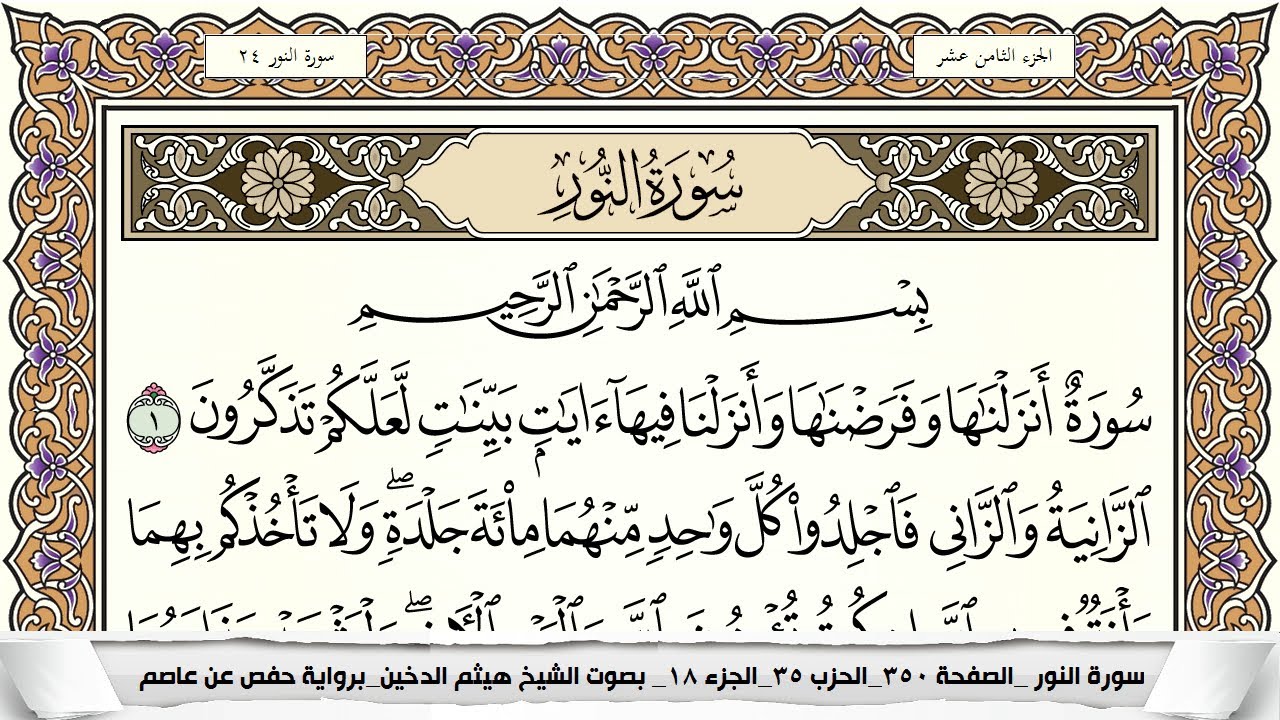 الجزء الثامن عشر
سورة النور ٢٤
سُورَةُ النُّورِ
بِسْمِ ٱللَّهِ ٱلرَّحْمَٰنِ ٱلرَّحِيمِ
سُورَةٌ أَنزَلْنَٰهَا وَفَرَضْنَٰهَا وَأَنزَلْنَا فِيهَآ ءَايَٰتٍۭ بَيِّنَٰتٍ لَّعَلَّكُمْ تَذَكَّرُونَ ١
ٱلزَّانِيَةُ وَٱلزَّانِى فَٱجْلِدُوا۟ كُلَّ وَٰحِدٍ مِّنْهُمَا مِا۟ئَةَ جَلْدَةٍ ۖ وَلَا تَأْخُذْكُم بِهِمَا
سورة النور _الصفحة ٣٥٠_الحزب ٣٥_الجزء ١٨_ بصوت الشيخ هيثم الدخين_برواية حفص عن عاصم